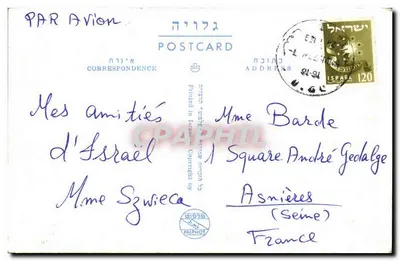 PAR AVION
גלויה
POSTCARD
אישית
CORRESPONDENCE
כתובת
ADDRESS
ישראל
ISRAEL
120
Mes amitiés
d'Israël
Mme Szwieca
Printed in Israel Copyright by
PALPHOT
Mme Barde
1 Square André Gedalge
Asnières
(Seine)
France
CPAPHIL.COM